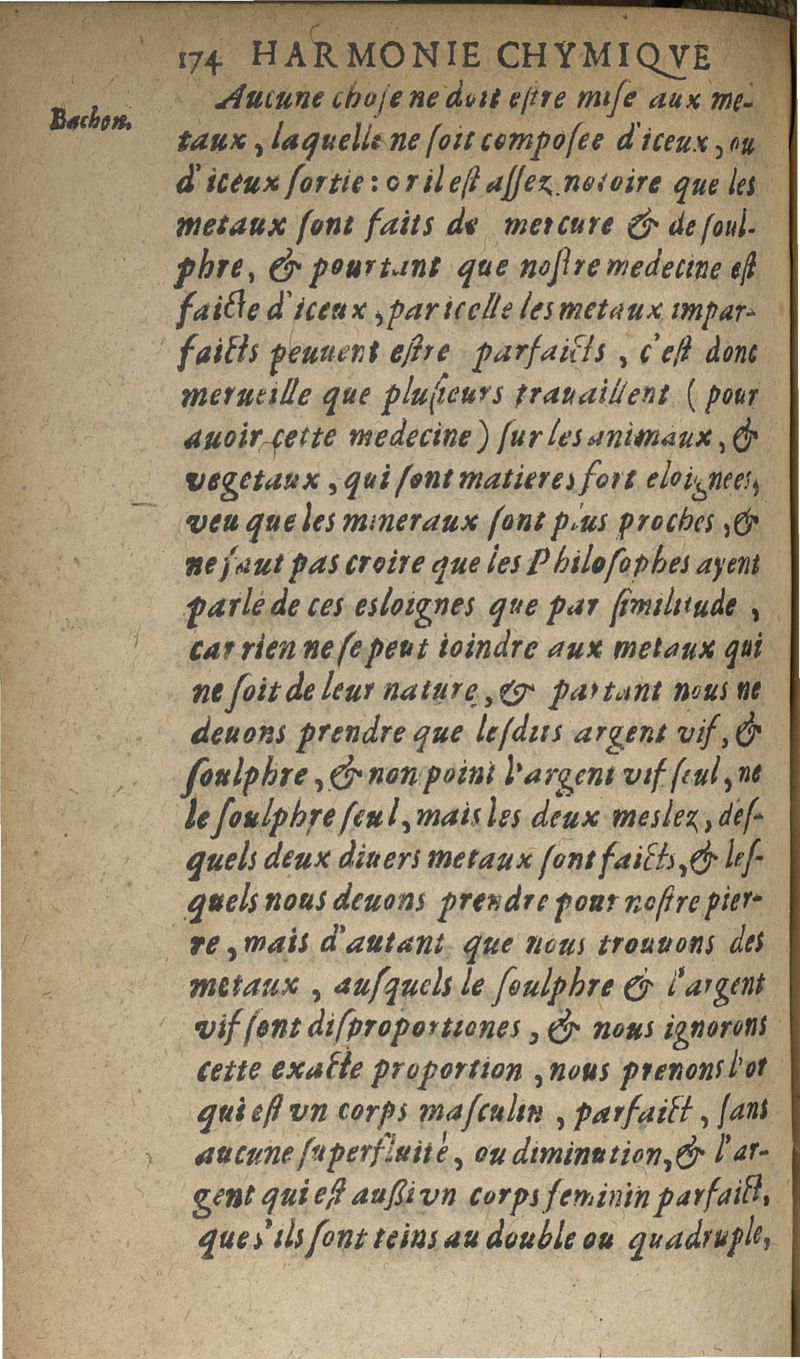 174 HARMONIE CHYMIQVE
Bachon.
Aucune choſe ne doit eſtre miſe aux me-
taux, laquelle ne ſoit compoſee d'iceux, ou
d'iceux ſortie: or il eſt aſſez notoire que les
metaux ſont faits de mercure & de ſoul-
phre, & pourtant que noſtre medecine eſt
faicte d'iceux, par icelle les metaux impar-
faicts peuuent eſtre parfaicts, c'eſt donc
merueille que pluſieurs trauaillent (pour
auoir cette medecine) ſur les animaux, &
vegetaux, qui ſont matieres fort eloignees,
veu que les mineraux ſont plus proches, &
ne faut pas croire que les Philoſophes ayent
parlé de ces esloignes que par ſimilitude,
car rien ne ſe peut ioindre aux metaux qui
ne ſoit de leur nature, & partant nous ne
deuons prendre que leſdits argent vif, &
ſoulphre, & non point l'argent vif ſeul, ne
le ſoulphre ſeul, mais les deux meslez, deſ-
quels deux diuers metaux ſont faicts, & leſ-
quels nous deuons prendre pour noſtre pier-
re, mais d'autant que nous trouuons des
metaux, auſquels le ſoulphre & l'argent
vif ſont diſproportiones, & nous ignorons
cette exacte proportion, nous prenons l'or
qui eſt vn corps maſculin, parfaict, ſans
aucune ſuperfluité, ou diminution, & l'ar-
gent qui eſt außi vn corps feminin parfaict,
que s'ils ſont teins au double ou quadruple,